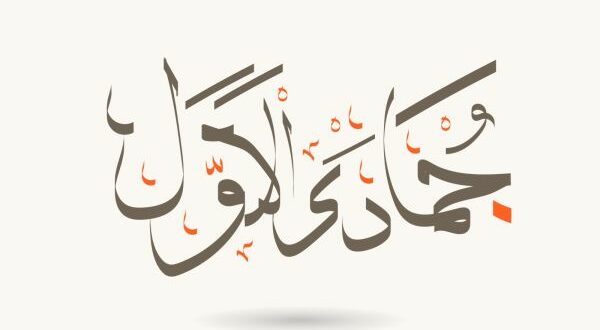 جُمادى الأوّل